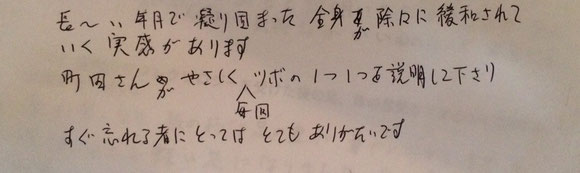 長〜い年月で凝り固まった全身が除々に緩和されて
いく実感があります
町田さんがやさしく毎回ツボの1つ1つを説明して下さり
すぐ忘れる者にとってはとてもありがたいです